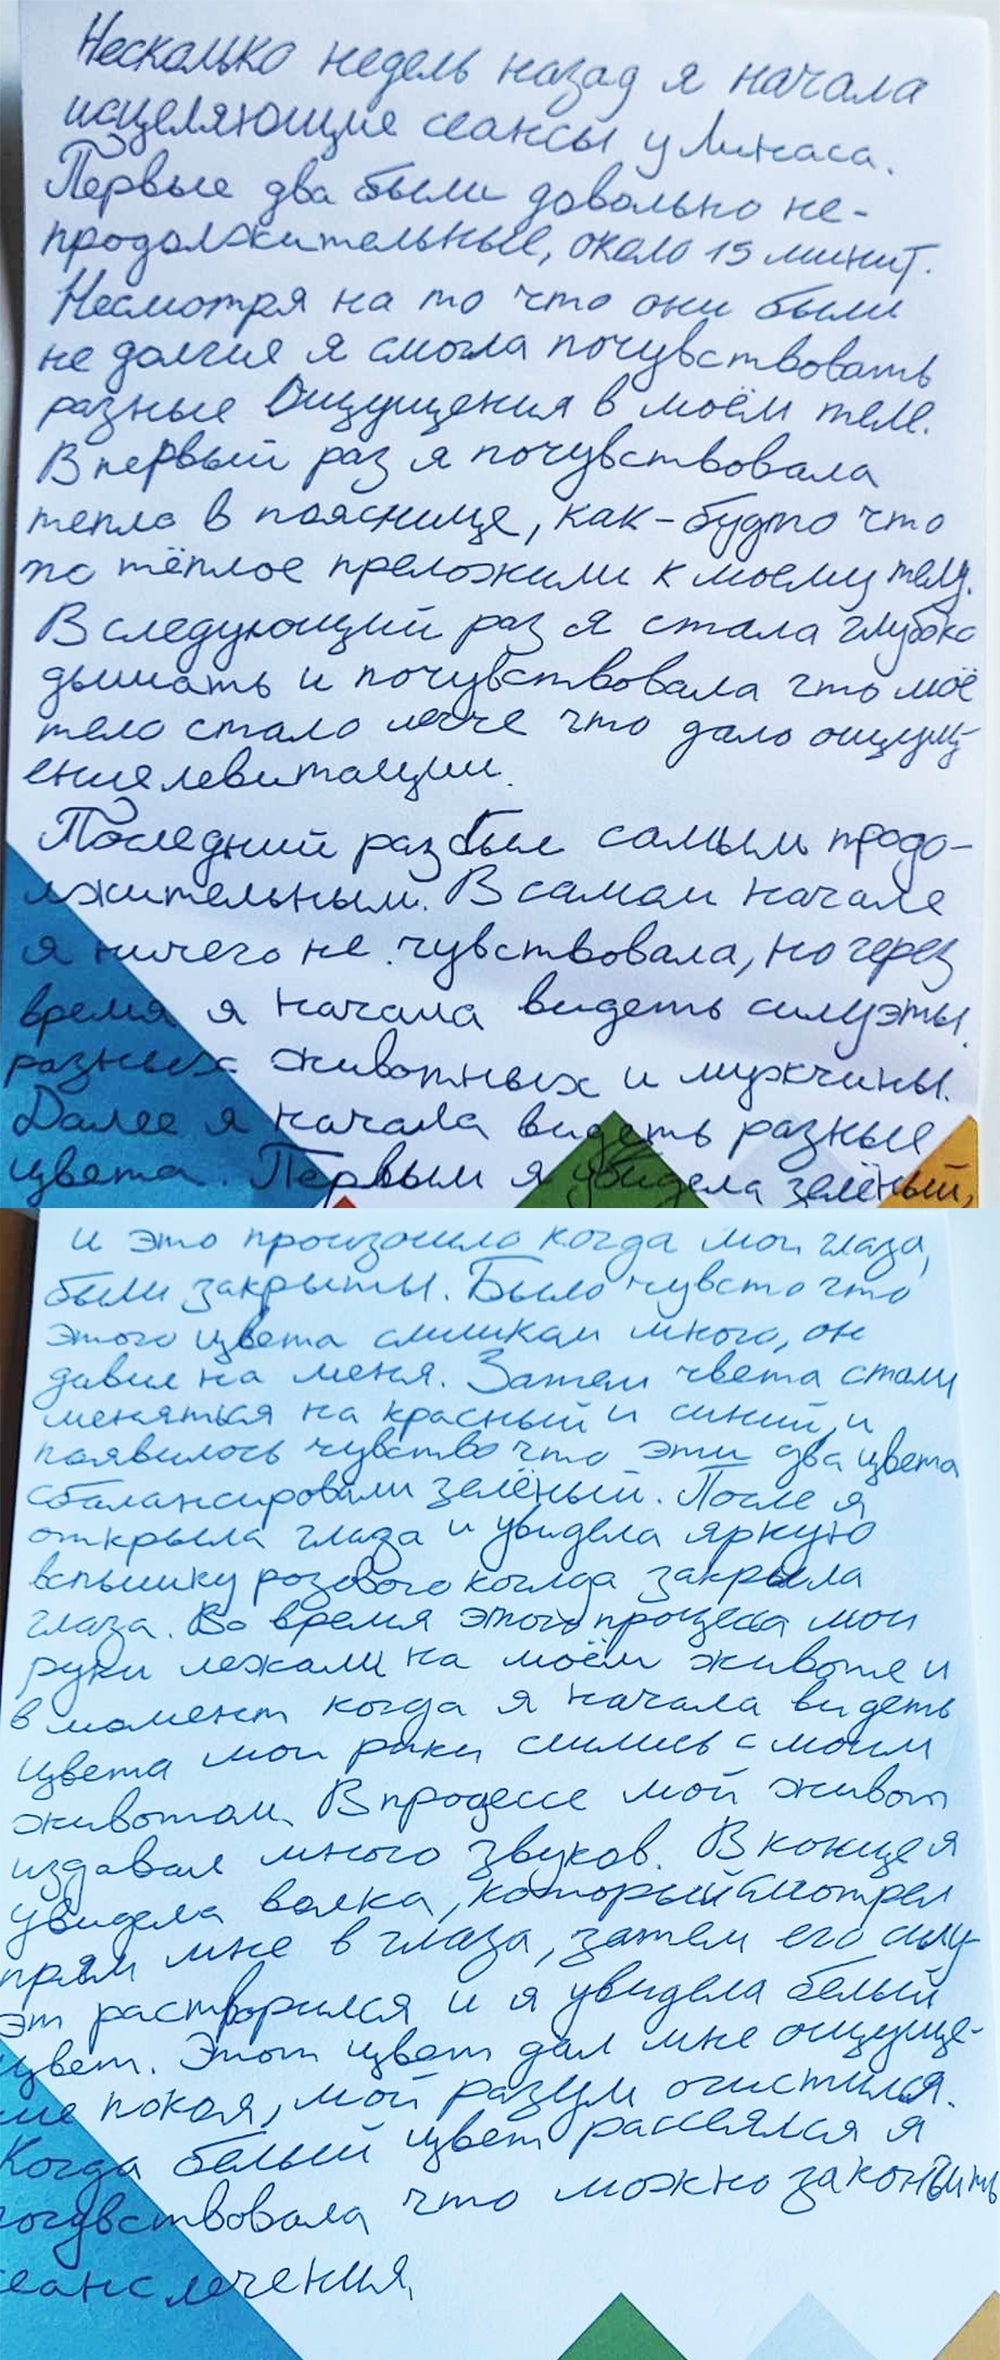 Несколько недель назад я начала
исцеляющие сеансы у Линаса.
Первые два были довольно не-
продолжительные, около 15 минут.
Несмотря на то что они были
не долгие я смогла почувствовать
разные Ощущения в моём теле.
В первый раз я почувствовала
тепло в пояснице, как-будто что
то тёплое преложили к моему телу.
В следующий раз я стала глубоко
дышать и почувствовала что моё
тело стало легче что дало ощущ-
ение левитации.
Последний раз был самым продо-
лжительным. В самом начале
я ничего не чувствовала, но через
время я начала видеть силуэты
разных животных и мужчины.
Далее я начала видеть разные
цвета. Первым я увидела зелёный,
и это произошло когда мои глаза
были закрыты. Было чувсто что
этого цвета слишком много, он
давил на меня. Затем цвета стали
меняться на красный и синий, и
появилось чувство что эти два цвета
сбалансировали зелёный. После я
открыла глаза и увидела яркую
вспышку розового когда закрыла
глаза. Во время этого процесса мои
руки лежали на моём животе и
в момент когда я начала видеть
цвета мои руки слились с моим
животом. В процессе мой живот
издавал много звуков. В конце я
увидела волка, который смотрел
прям мне в глаза, затем его силу-
эт растворился и я увидела белый
цвет. Этот цвет дал мне ощуще-
ие покоя, мой разум очистился.
Когда белый цвет рассеялся я
почувствовала что можно закончить
сеанс лечения.